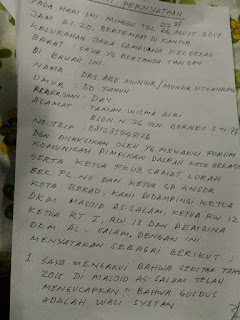 PERNYATAAN
PADA HARI INI MINGGU TGL 26 AGUST 2017
JAM 21.20. BERTEMPAT DI KANTOR
KELURAHAN JAKA SAMPURNA KEC BEKASI
BARAT SAYA YG BERTANDA TANGAN
DI BAWAH INI.
NAMA DRS. ABD. MUNGIR / MUNGIR
UMUR : 50 TAHUN
PEKERJAAN : DAI
ALAMAT TAMAN WISMA ASRI
BLOK N. 75 JLN. BORNEO
NO. TELP
DGN DISAKSIKAN OLEH YG MEWAKILI FORUM
KOMUNIKASI PIMPINAN DAERAH KOTA BEKASI
SERTA KETUA FKUB CAMAT LURAH
BEK. PC. NU DAN KETUA GP. ANSOR
KOTA BEKASI, KAMI DIDAMPINGI KETUA
DKM MASJID AS-SALAM, KETUA RW 12
KETUA RT I, RW 13 DAN PEMBINA
DKM AS-SALAM DENGAN INI
MENYATAKAN SEBAGAI BERIKUT :
1. SAYA MENGAKUI BAHWA SEKITAR TAHUN
2015 DI MASJID AS-SALAM TELAH
MENGUCAPKAN " BAHWA GUSDUR
ADALAH WALI SYETAN